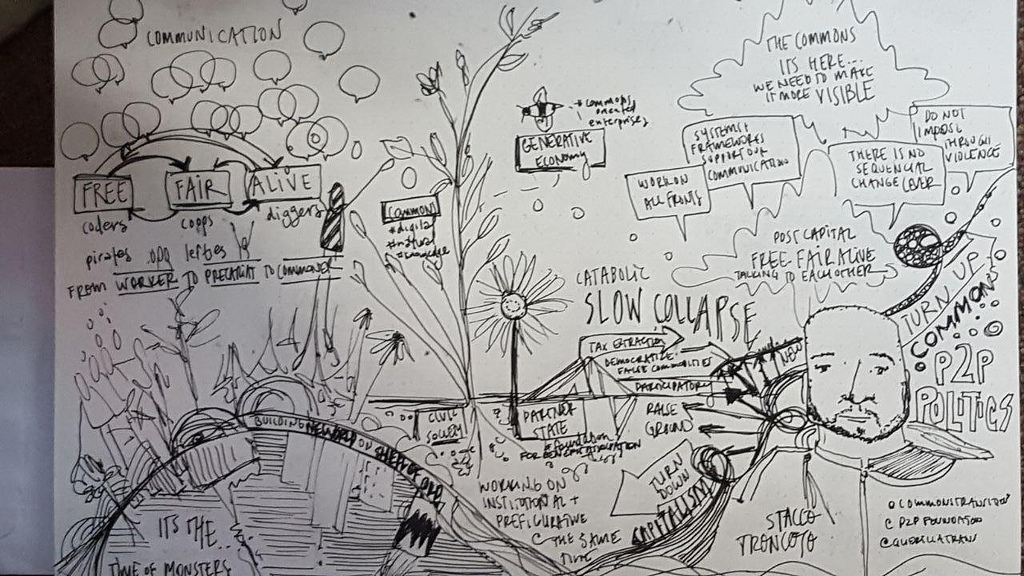 COMMUNICATION
FREE
FAIR
ALIVE
coders
coops
diggers
pirates
lefties
FROM WORKER TO PRECARIAT TO COMMONER
COMMON
#digital
#natural
#knowledge
GENERATIVE
ECONOMY
THE COMMONS
ITS HERE...
WE NEED TO MAKE
IT MORE VISIBLE
DO NOT
IMPOSE
THROUGH
VIOLENCE
SYSTEMS
FRAMEWORKS
SUPPORT OUR
COMMUNICATION
WORK ON
ALL FRONTS
THERE IS NO
SEQUENTIAL
CHANGE OVER
POST CAPITAL
FREE FAIR ALIVE
TALKING TO EACH OTHER
CATABOLIC
SLOW COLLAPSE
TAX EXTRACTION
PARTICIPATORY
RAISE
GROUND
TURN
DOWN
CAPITALISM
TURN UP
COMMONS
P2P
POLITICS
CIVIL
SOCIETY
PARTNER
STATE
WORKING ON
INSTITUTIONAL +
PREFIGURATIVE
@ THE SAME
TIME
ITS THE...
TIME OF MONSTERS
STACCO
TRONCOSO
@COMMONSTRANSITION
@ P2P FOUNDATION
@GUERILLATRANS